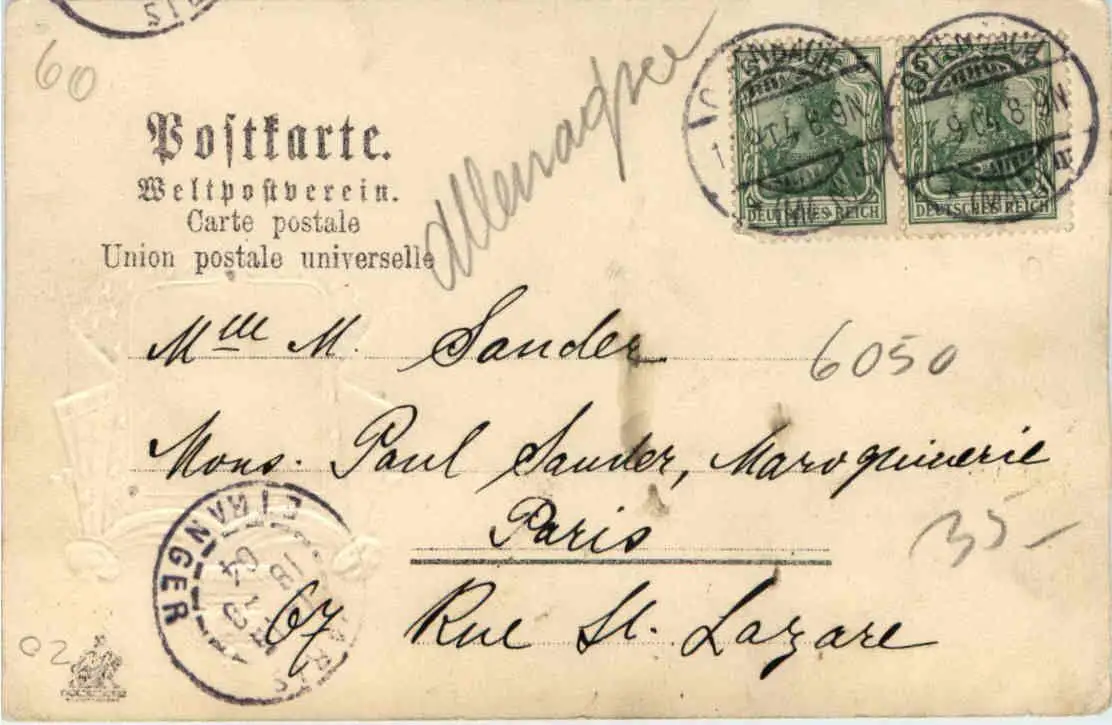 60
Allemagne
Postkarte.
Weltpostverein.
Carte postale
Union postale universelle
OFFENBACH
9 04 8-9N
(MAIN)
DEUTSCHES REICH
DEUTSCHES REICH
Mlle M. Sander
6050
Mons. Paul Sander, Maroquinerie
Paris
35-
67 Rue St. Lazare
ETRANGER
PARIS
02